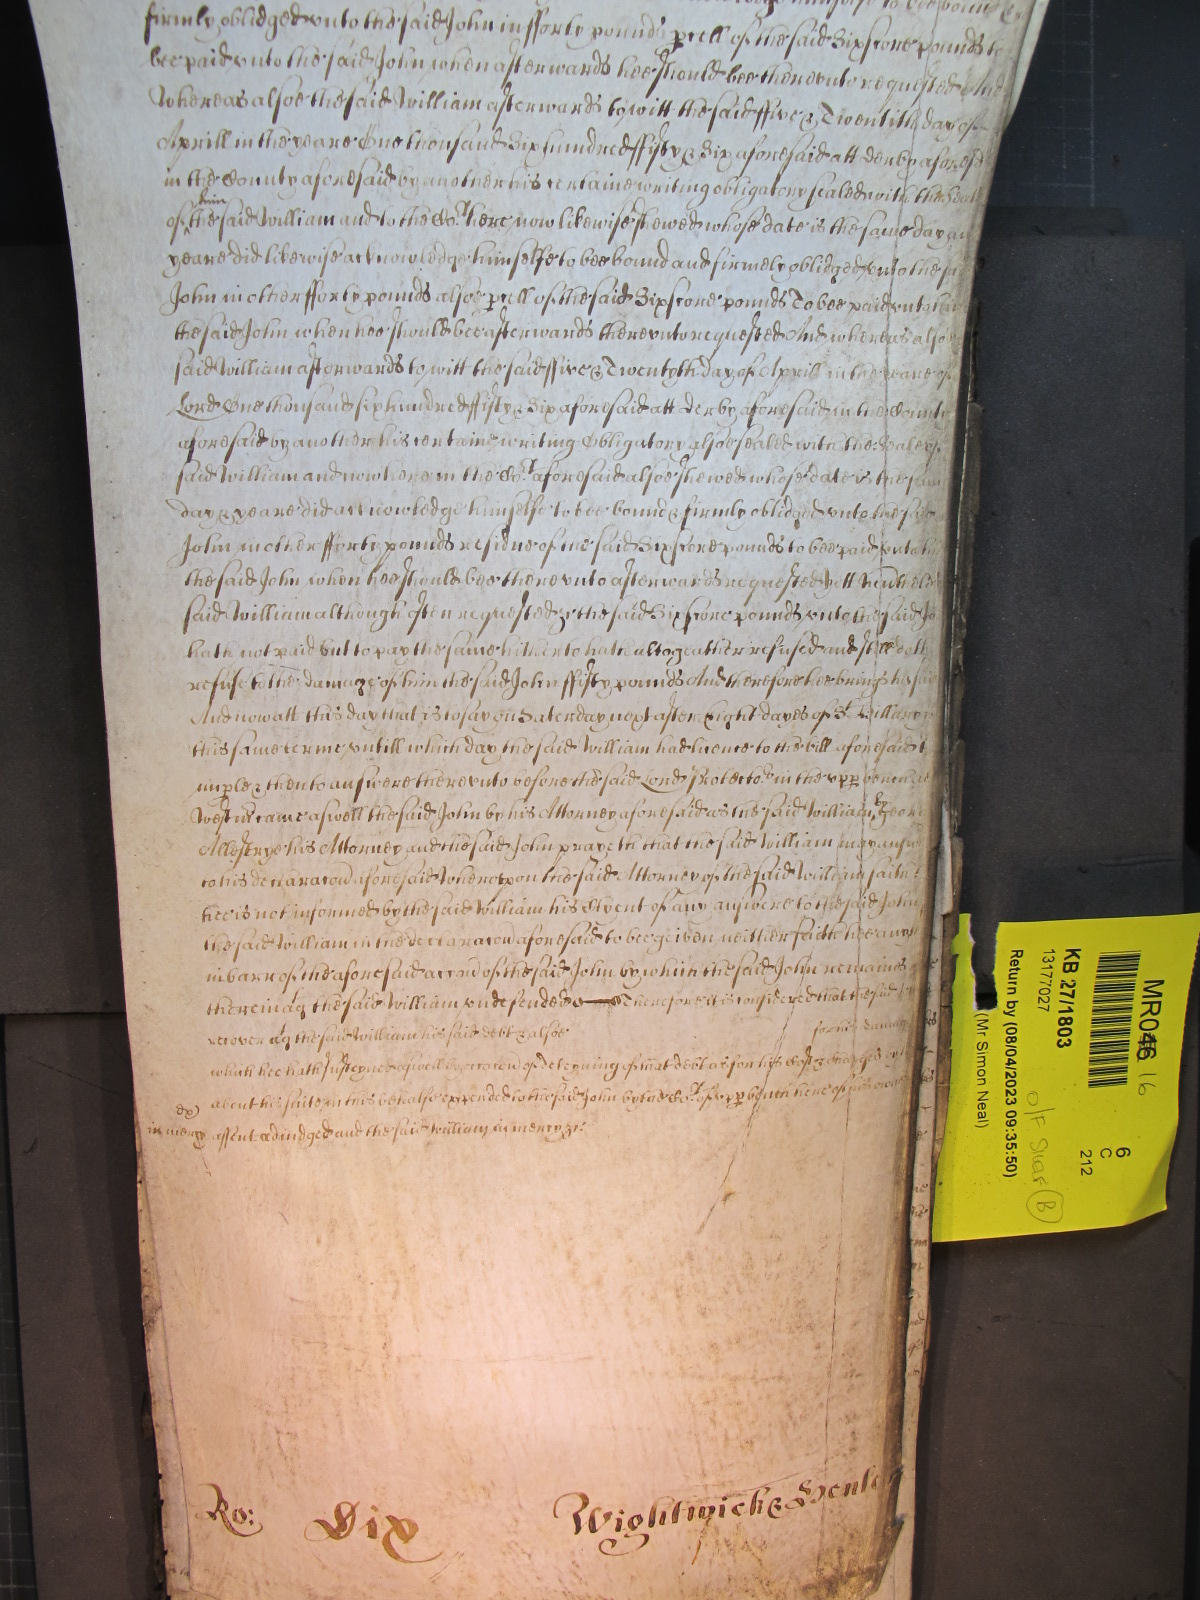 firmly obliged vnto the said John in fforty pounds pcell of the said Sixscore pounds to
bee paid vnto the said John when afterwards hee should bee therevnto requested And
Whereas alsoe the said William afterwards to witt the said ffive & Twentith day of
Aprill in the yeare One thousand Six hundred ffifty & Six aforesaid att derby aforesd
in the County aforesaid by another his certaine writing obligatory sealed with the Seale
of him the said William and to the Cort here now likewise shewed whose date is the same day an
yeare did likewise acknowledge himselfe to bee bound and firmely oblidged vnto the sd
John in other fforty pounds alsoe pcell of the said Sixscore pounds To bee paid vnto him
the said John when hee should bee afterwards therevnto requested And whereas alsoe
said William afterwards to witt the said ffive & Twentyth day of Aprill in the yeare of
Lord One thousand six hundred ffifty & Six aforesaid att derby aforesaid in the County
aforesaid by another his certaine writing Obligatory alsoe sealed with the Seale of
said William and now here in the Cort aforesaid alsoe shewed whose date is the same
day & yeare did acknowledge himselfe to bee bound & firmly oblidged vnto the said
John in other fforty pounds residue of the said Sixscore pounds to bee paid vnto him
the said John when hee should bee therevnto afterwards requested Yett
said William although often requested &c the said Sixscore pounds vnto the said Jo
hath not paid but to pay the same hitherto hath altogeather refused and still doth
refuse to the damage of him the said John ffifty pounds And therefore hee brings his suit
And now att this day that is to say on Saterday next after Eight dayes of St Hillary in
this same terme vntill which day the said William had licence to the bill aforesaid t
imple & then to answere therevnto before the said Lord Protector in the vpp bench att
Westmr came aswell the said John by his Attorney aforesaid as the said William by George
Allestrye his Attorney and the said John prayeth that the said William may answ
to his declaracon aforesaid Wherevpon the said Attorney of the said William saith t
hee is not informed by the said William his Clyent of any answere to the said John
the said William in the declaracon aforesaid to bee geiven neither saith hee any
in barr of the aforesaid accon of the said John by which the said John remaines
therein agt the said William vndefended Therefore it is considered that the said
recover agt the said William his said debt & alsoe for his damag
which hee hath susteyned aswell by occacon of deteyning of that debt as for his Costs & charges by
about his suite in this behalfe expended to the said John by the Cort of vpp bench here of his owne
assent adiudged and the said William in mercy &c
in mercy
Ro: Dix Wightwick &
MR046 16
KB 27/1803
13177/027
Return by (08/04/2023 09:35:50)
(Mr Simon Neal)
6
C
212
O/F Shelf B